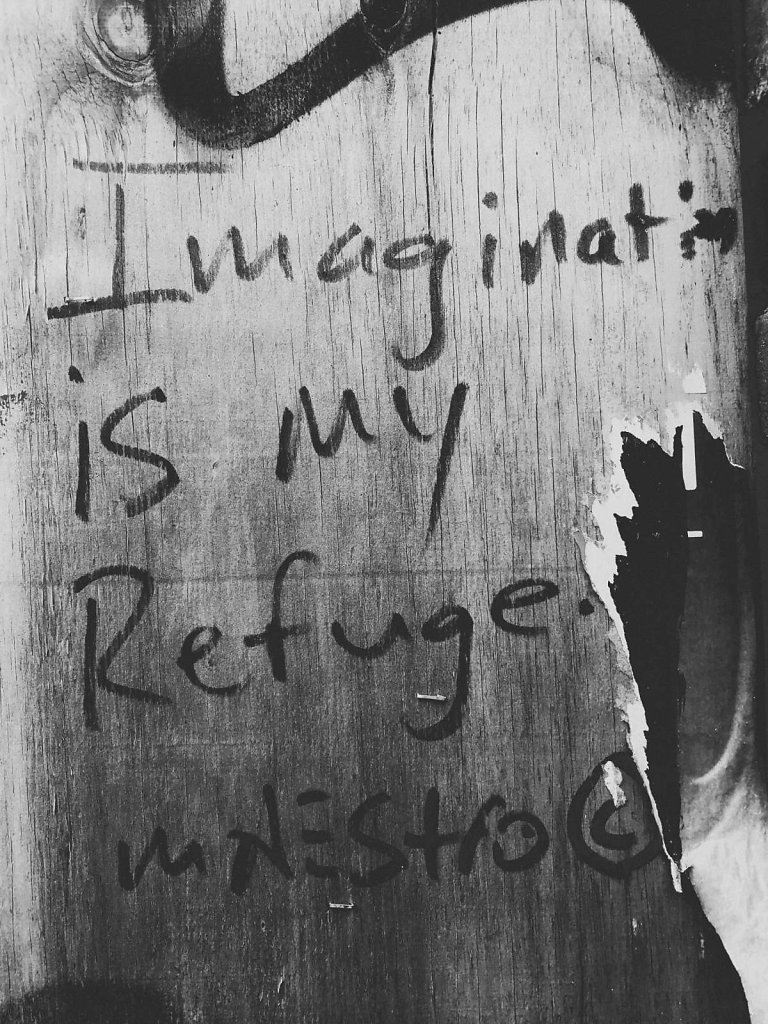 Imagination
is my
Refuge.
mAEStro ©